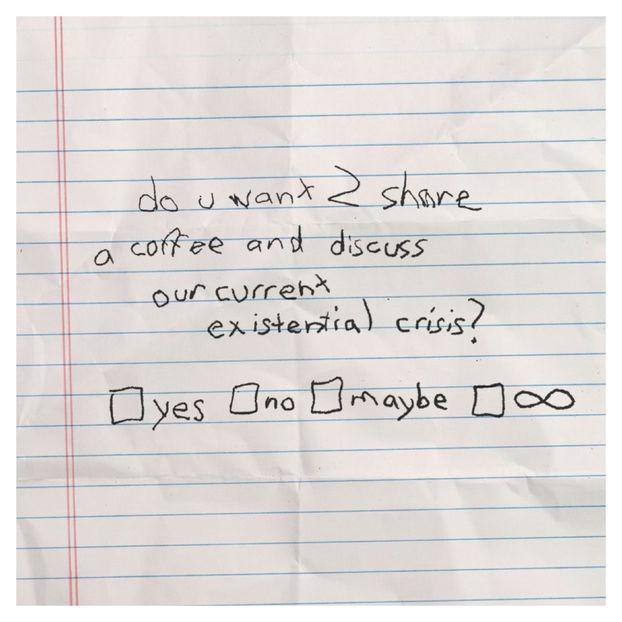 do u want 2 share
a coffee and discuss
our current
existential crisis?
☐ yes ☐ no ☐ maybe ☐ ∞